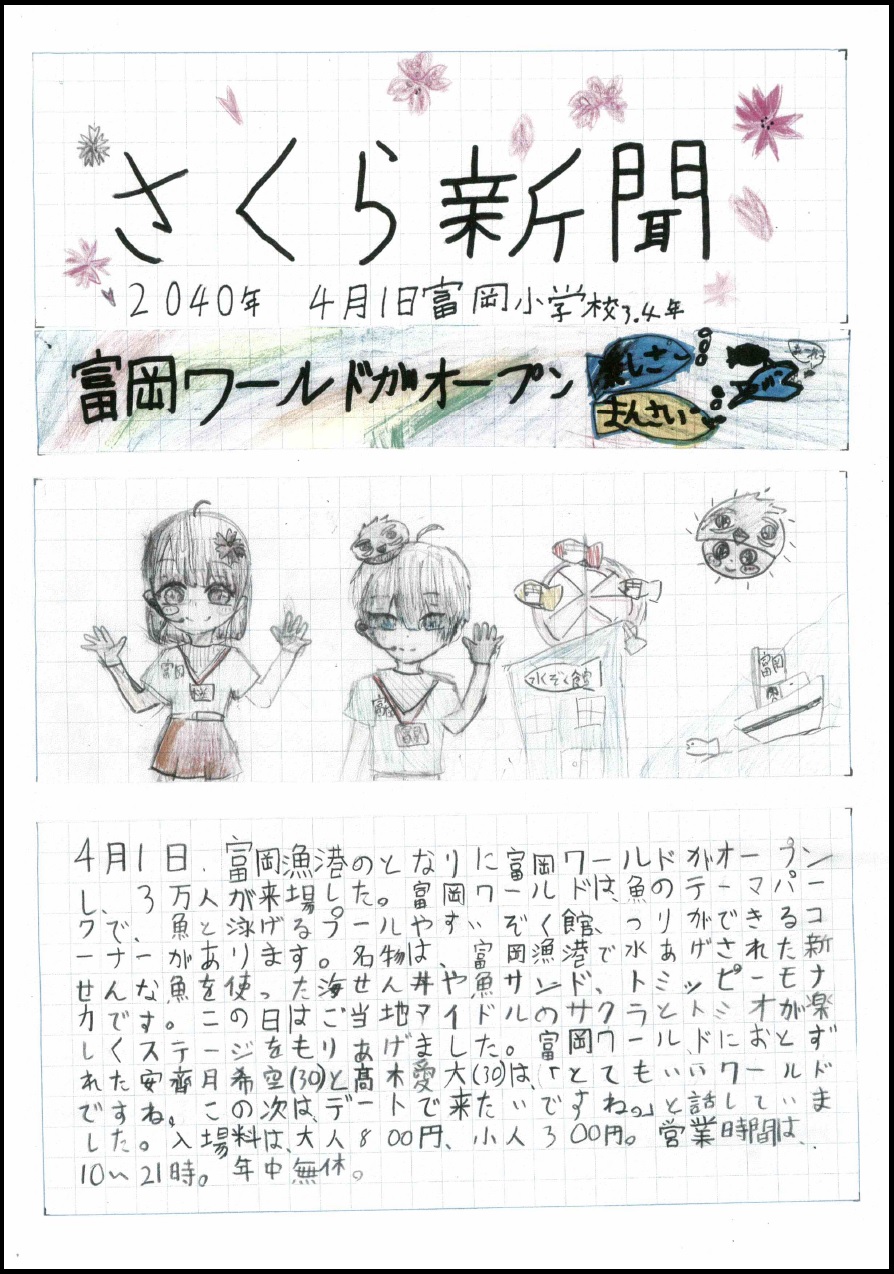 さくら新聞
2040年 4月1日富岡小学校3.4年
富岡ワールドがオープン
楽しさ
まんさい
富岡
桜
富岡
富岡
水ぞく館
富岡
4月1日、富岡漁港のとなりに富岡ワールドがオープン
し、3万人が来場した。富岡ワールドは、魚のテーマパー
クで、魚と泳げるプールやすいぞく館、つりができるコ
ーナーがあります。名物は、富岡漁港で水あげされた新
せんな魚を使った海せん丼や魚サンド、トミッピーモナ
カです。この日はご当地アイドルのサクラとトミオが楽
しくステージをもりあげました。富岡ワールドにおとず
れた安齊月希空(30)と高木愛大(30)は、「とてもいいワールド
ですね。この次は、デートで来たいですね。」と話していま
した。入場料は、大人800円、小人300円。営業時間は、
10〜21時。年中無休。